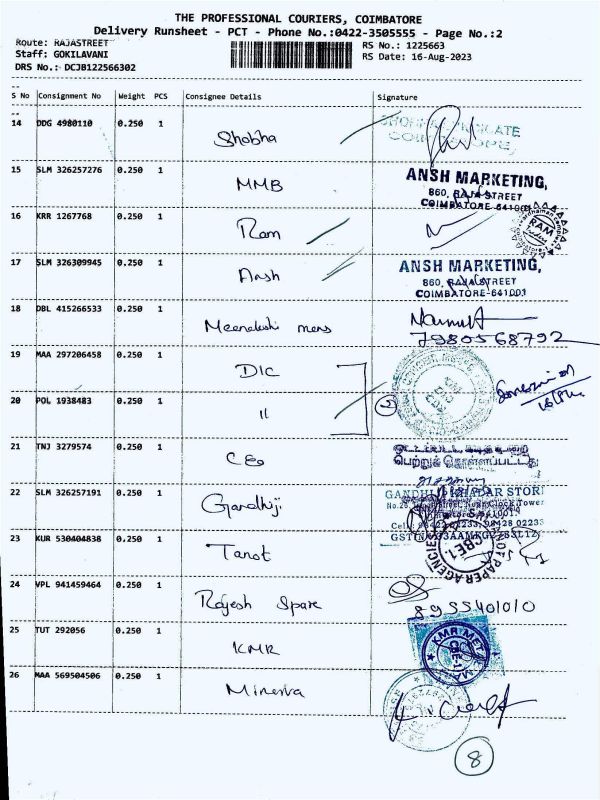 THE PROFESSIONAL COURIERS, COIMBATORE
Delivery Runsheet - PCT - Phone No.:0422-3505555 - Page No.:2
Route: RAJASTREET
RS No.: 1225663
Staff: GOKILAVANI
RS Date: 16-Aug-2023
DRS No.: DCJB122566302
S No Consignment No Weight PCS Consignee Details Signature
14 DDG 4980110 0.250 1 Shobha
15 SLM 326257276 0.250 1 MMB
ANSH MARKETING,
860, RAJA STREET
COIMBATORE-641001
16 KRR 1267768 0.250 1 Ram
RAM
17 SLM 326309945 0.250 1 Ansh
ANSH MARKETING,
860, RAJA STREET
COIMBATORE-641001
18 DBL 415266533 0.250 1 Meenakshi mens
7980568792
19 MAA 297206458 0.250 1 DIC
20 POL 1938483 0.250 1 11
2
21 TNJ 3279574 0.250 1
பெற்றுக் கொள்ளப்பட்டது
22 SLM 326257191 0.250 1 Gandhiji
GANDHIJI KHADAR STORE
23 KUR 530404838 0.250 1 Tanot
OF PAPER AGENCIES
CBE1.
24 VPL 941459464 0.250 1 Rajesh Spare
8955401010
25 TUT 292056 0.250 1 KMR
KMR METAL MA
CBE-1
26 MAA 569504506 0.250 1 Minerva
8